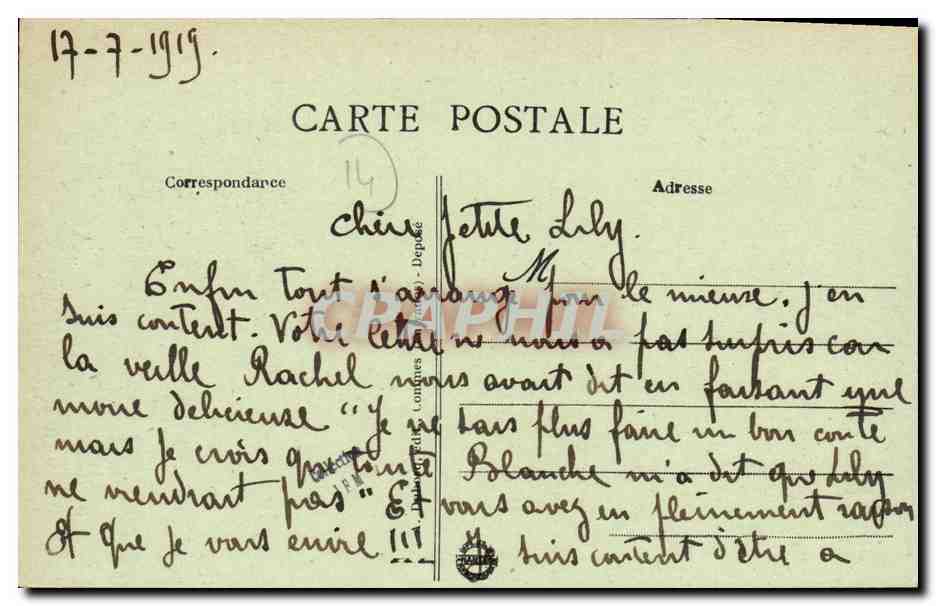 17-7-1919.
CARTE POSTALE
14
Correspondance
Adresse
Chère petite Lily.
Enfin tout s'arrange pour le mieux. J'en
suis content. Votre lettre ne nous a pas surpris car
la veille Rachel nous avait dit en faisant une
moue delicieuse "Je ne sais plus faire un bon conte
mais je crois que tante Blanche m'a dit que Lily
ne viendrait pas" Et vous avez eu pleinement raison
et que je vous envie !!!
suis content d'être a
Comines
Déposé
CPAPHIL
Collection